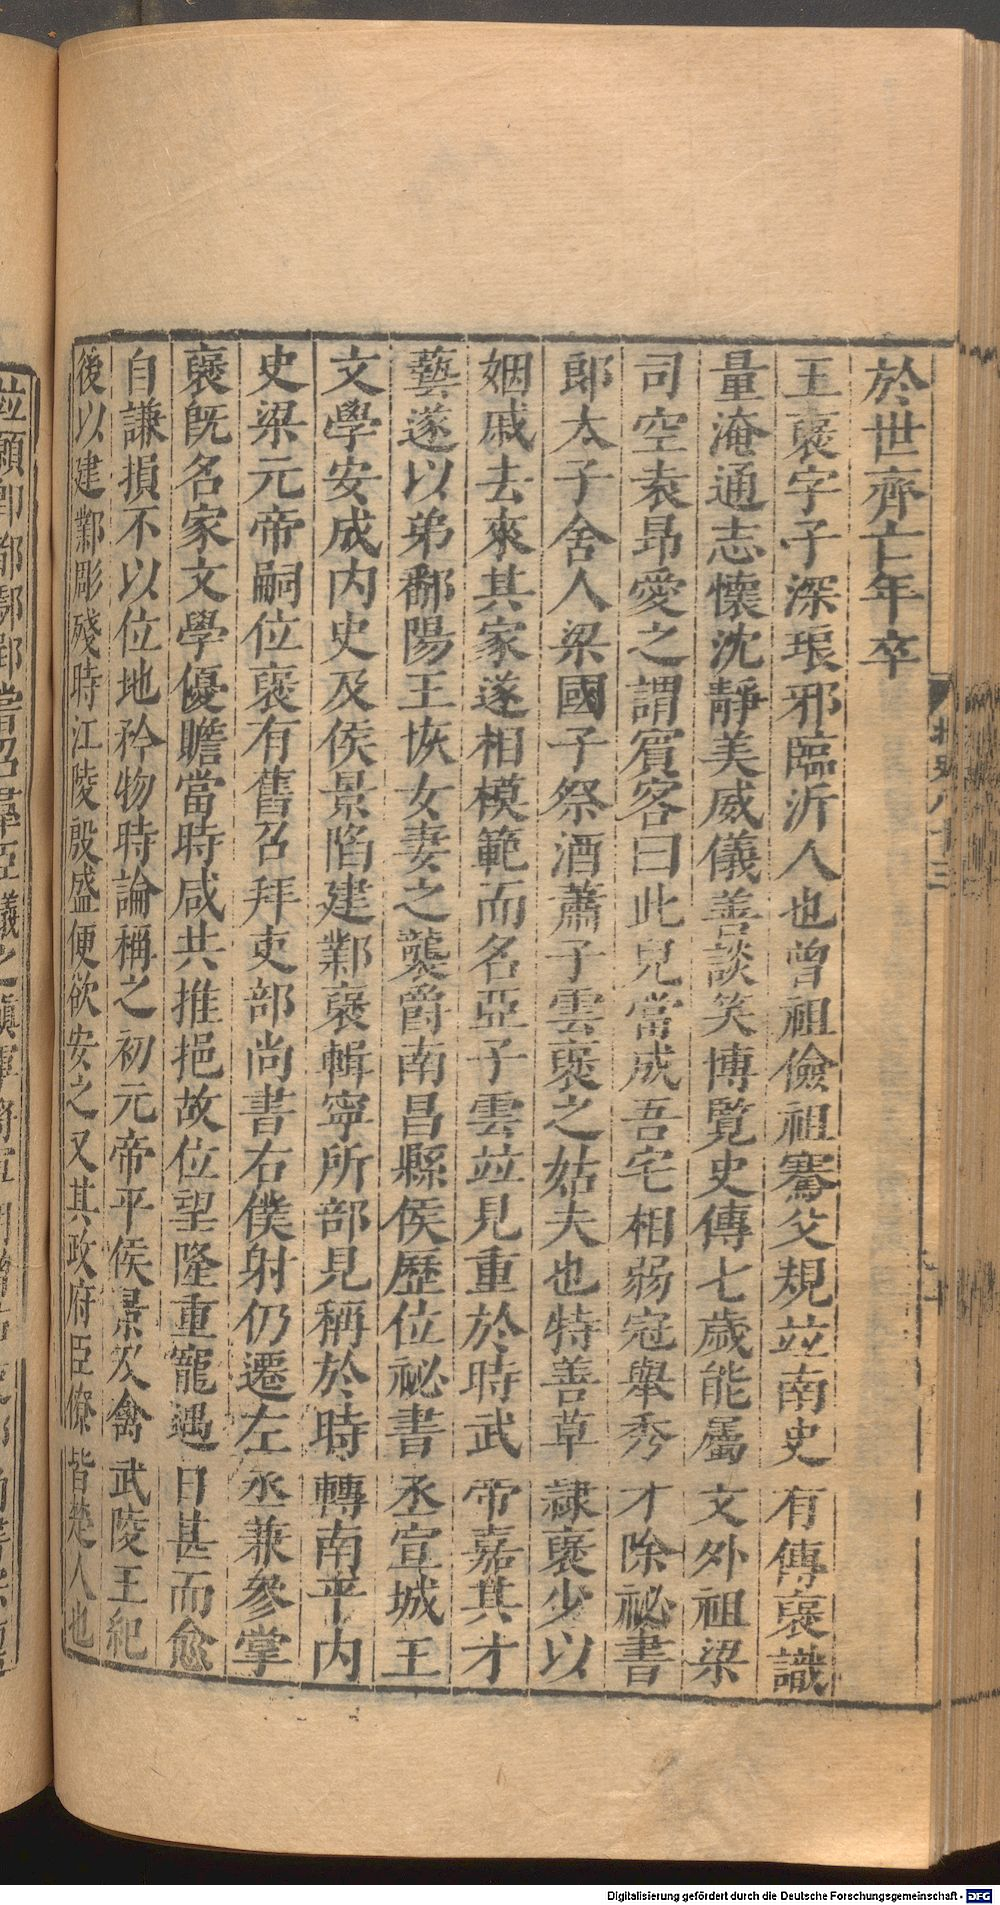 於世齊亡年卒
王襃字子深琅邪臨沂人也曾祖儉祖騫父規竝南史有傳襃識
量淹通志懷沈靜美威儀善談笑博覽史傳七歲能屬文外祖梁
司空袁昂愛之謂賓客曰此兒當成吾宅相弱冠舉秀才除祕書
郎太子舍人梁國子祭酒蕭子雲襃之姑夫也特善草隷襃少以
姻戚去來其家遂相模範而名亞子雲竝見重於時武帝嘉其才
藝遂以弟鄱陽王恢女妻之襲爵南昌縣侯歷位祕書丞宣城王
文學安成内史及侯景陷建鄴襃輯寧所部見稱於時轉南平内
史梁元帝嗣位襃有舊召拜吏部尚書右僕射仍遷左丞兼參掌
襃旣名家文學優贍當時咸共推挹故位望隆重寵遇日甚而愈
自謙損不以位地矜物時論稱之初元帝平侯景及禽武陵王紀
後以建鄴彫殘時江陵殷盛便欲安之又其政府臣僚皆楚人也
竝願即都鄢郢嘗召羣臣議之鎭軍將軍
Digitalisierung gefördert durch die Deutsche Forschungsgemeinschaft - DFG